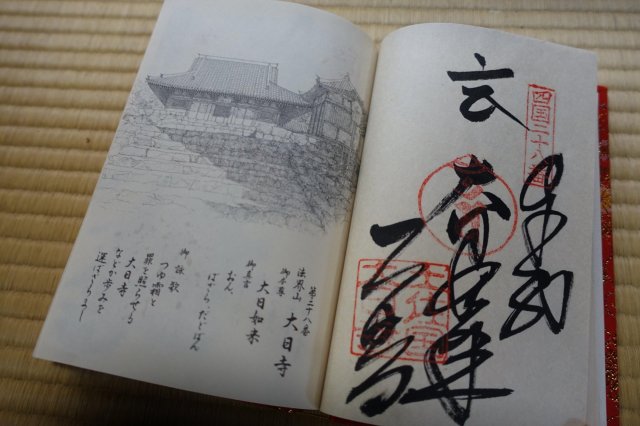 四国二十八番
大日如来
第二十八番
法界山 大日寺
御本尊 大日如来
御真言
おん、
ばざら、だどばん
御詠歌
つゆ霜と
罪を照らせる
大日寺
などか歩みを
運ばざらまし